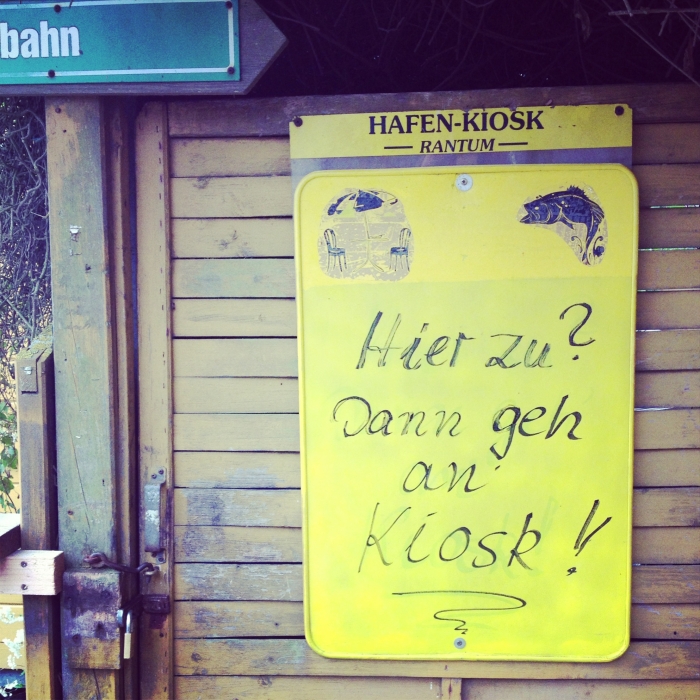 bahn
HAFEN-KIOSK
— RANTUM —
Hier zu?
Dann geh
an
Kiosk!